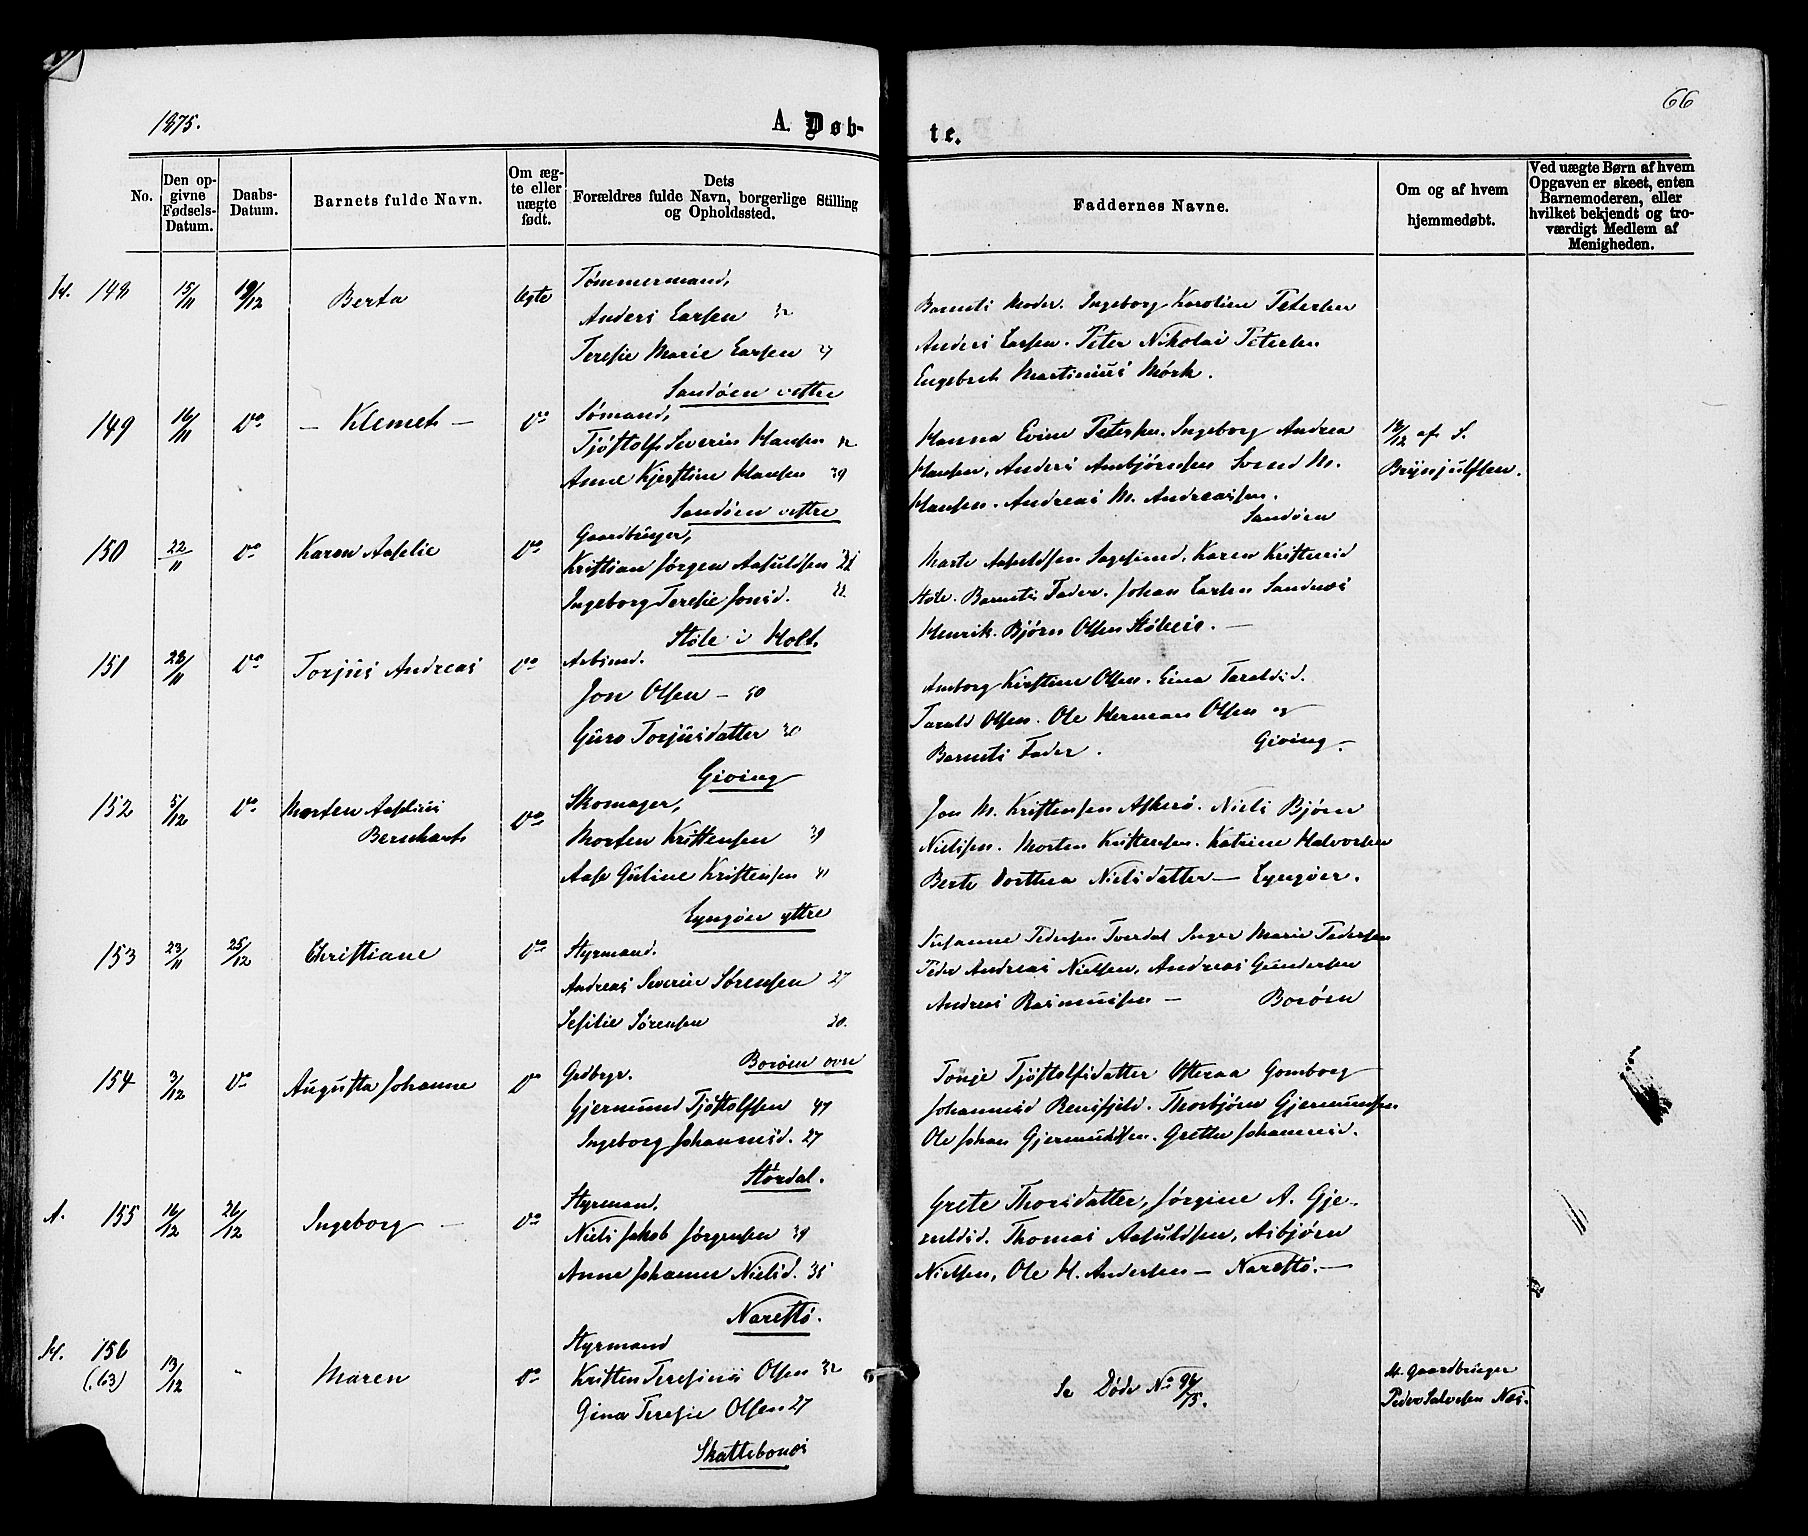 66
1875.
A. Døb-
te.
No.
Den op-
givne
Fødsels-
Datum.
Daabs-
Datum.
Barnets fulde Navn.
Om æg-
te eller
uægte
født.
Dets
Forældres fulde Navn, borgerlige Stilling
og Opholdssted.
Faddernes Navne.
Om og af hvem
hjemmedøbt.
Ved uægte Børn af hvem
Opgaven er skeet, enten
Barnemoderen, eller
hvilket bekjendt og tro-
værdigt Medlem af
Menigheden.
148 15/11 19/12 Berta ægte
Tømmermand,
Anders Larsen 32
Teresie Marie Larsen 27
Sandøen vestre
Barnets Moder. Ingeborg Karoline Petersen
Anders Larsen. Peter Nikolai Petersen
Engebret Martinius Mørk.
149 16/11 Do – Klemet – Do
Sømand,
Tjøstolf Severin Hansen
Anne Kjerstine Hansen 39
Sandøen vestre
Hanna Evine Petersen. Ingeborg Andrea
Hansen, Anders Ambjørnsen Svend M.
Hansen. Andreas M. Andreassen.
Sandøen
18/12 af S.
Brynjulfsen.
150 22/11 Do Karen Aaselie Do
Gaardbruger,
Kristian Jørgen Aasulfsen
Ingeborg Teresie Jonsd.
Støle i Holt.
Marte Sagesund. Karen Kristensd
Støle. Barnets Fader. Johan Larsen Sandnæs
Henrik Bjørn Olsen
151 28/11 Do Torjus Andreas Do
Arbmd.
Jon Olsen – 50
Guro Torjusdatter 30
Giving
Amborg Kirstine Olsen. Lina Taraldsd.
Tarald Olsen. Ole Herman Olsen og
Barnets Fader. Giving –
152 5/12 Do Morten Aaselius
Bernhart Do
Skomager,
Morten Kristensen 39
Aase Guline Kristensen 41
Lyngøen yttre
Jon M. Kristensen Askerø. Niels Bjørn
Nielsen. Morten Kristensen. Katrine Halvorsen
Berte Dorthea Nielsdatter – Lyngøer.
153 23/11 25/12 Christiane Do
Styrmand.
Andreas Severin Sørensen 27
Sesilie Sørensen 30.
Borøen
Susanne Pedersen Tverdal Inger Marie Pedersen
Peder Andreas Nielsen, Andreas Gundersen
Andreas Rasmussen – Borøen
154 3/12 Do Augusta Johanne Do
Gdbrgr.
Gjermund Tjøstolfsen 47
Ingeborg Johannesd. 27
Størdal.
Tonje Tjøstolfsdatter Osteraa Gomborg
Johannesd Rensfjeld. Thorbjørn Gjermundsen
Ole Johan Gjermundsen. Grethe Johannesd.
A. 155 16/12 26/12 Ingeborg – Do
Styrmand,
Niels Jakob Jørgensen 39
Anne Johanne Nielsd. 35
Narestø.
Grete Thorsdatter, Jørgine A. Gje-
rulsd. Thomas Aasulfsen, Asbjørn
Nielsen, Ole H. Andersen – Narestø. –
156
(63) 13/12 " Maren Do
Styrmand
Kristen Teresius Olsen 32
Gina Teresie Olsen 27
Skattebonæs
Se Døde No 96/75.
Af Gaardbruger
Peder Salvesen Næs.